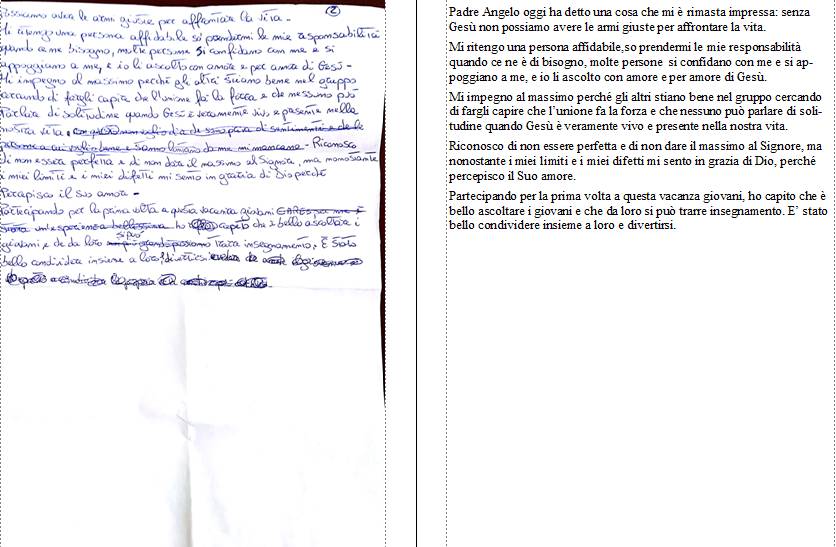 ②
possiamo avere le armi giuste per affrontare la vita -
Mi ritengo una persona affidabile so prendermi le mie responsabilità
quando ce ne bisogno, molte persone si confidano con me e si
appoggiano a me, e io li ascolto con amore e per amore di Gesù -
Mi impegno al massimo perché gli altri stiano bene nel gruppo
cercando di fargli capire che l'unione fa la forza e che nessuno può
parlare di solitudine quando Gesù è veramente vivo e presente nella
nostra vita. - Riconosco
di non essere perfetta e di non dare il massimo al Signore, ma nonostante
i miei limiti e i miei difetti mi sento in grazia di Dio perché
Percepisco il suo amore -
Partecipando per la prima volta a questa vacanza giovani
ho capito che è bello ascoltare i
si può
giovani e che da loro trarre insegnamento. È stato
bello condividere insieme a loro e divertirsi
Padre Angelo oggi ha detto una cosa che mi è rimasta impressa: senza
Gesù non possiamo avere le armi giuste per affrontare la vita.
Mi ritengo una persona affidabile,so prendermi le mie responsabilità
quando ce ne è di bisogno, molte persone si confidano con me e si ap-
poggiano a me, e io li ascolto con amore e per amore di Gesù.
Mi impegno al massimo perché gli altri stiano bene nel gruppo cercando
di fargli capire che l'unione fa la forza e che nessuno può parlare di soli-
tudine quando Gesù è veramente vivo e presente nella nostra vita.
Riconosco di non essere perfetta e di non dare il massimo al Signore, ma
nonostante i miei limiti e i miei difetti mi sento in grazia di Dio, perché
percepisco il Suo amore.
Partecipando per la prima volta a questa vacanza giovani, ho capito che è
bello ascoltare i giovani e che da loro si può trarre insegnamento. E' stato
bello condividere insieme a loro e divertirsi.